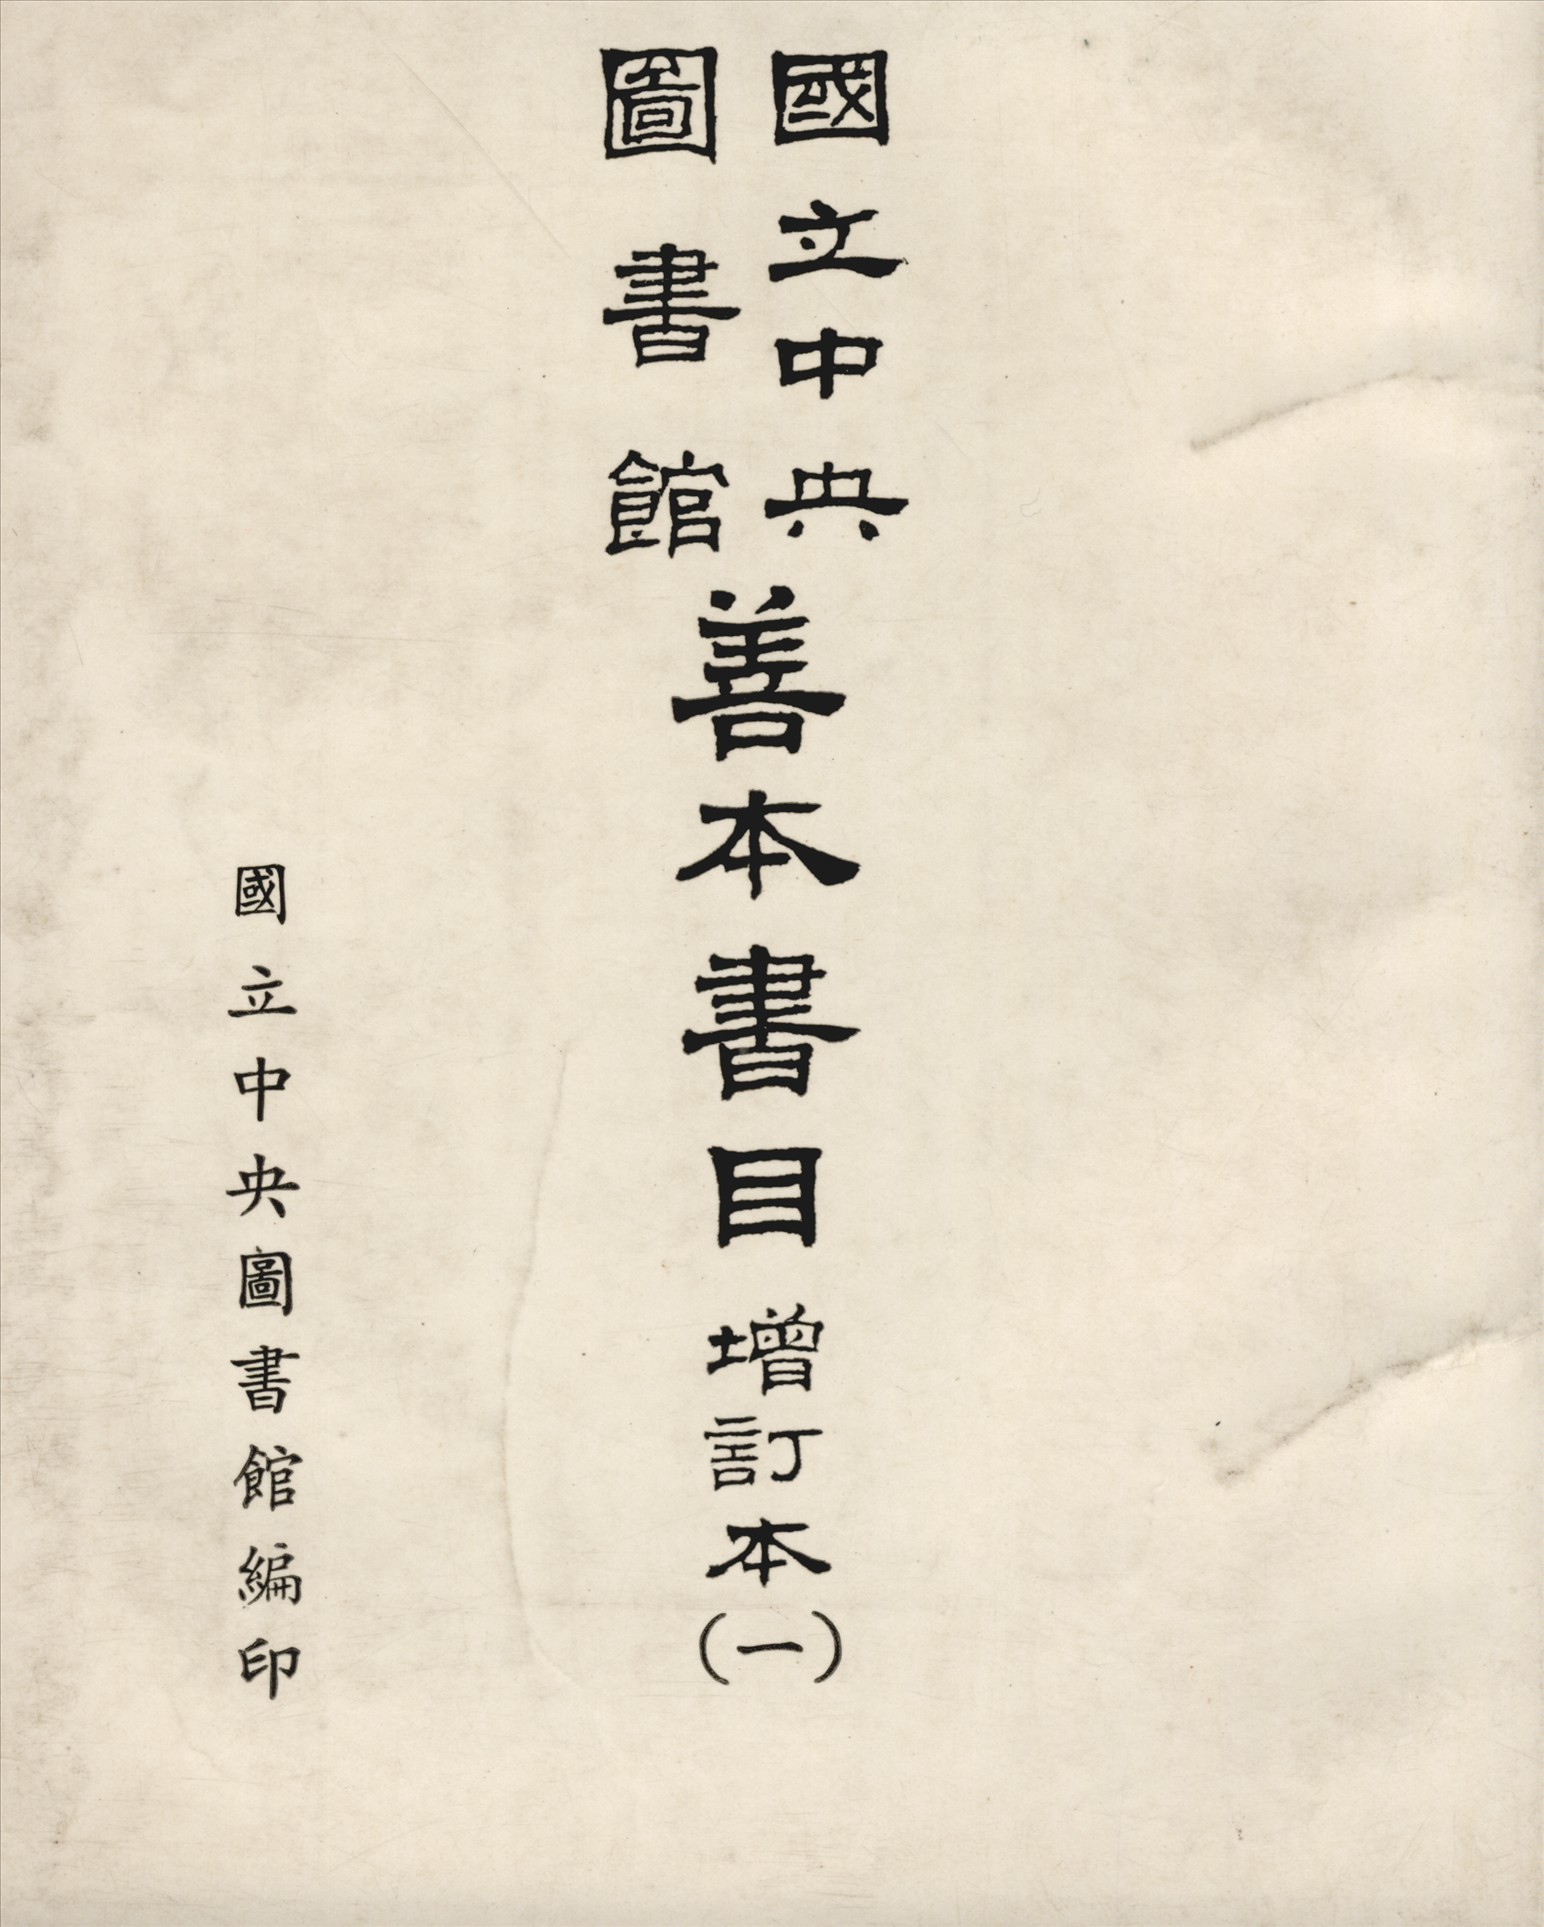 國立中央
圖書館
善本書目 增訂本(一)
國立中央圖書館編印